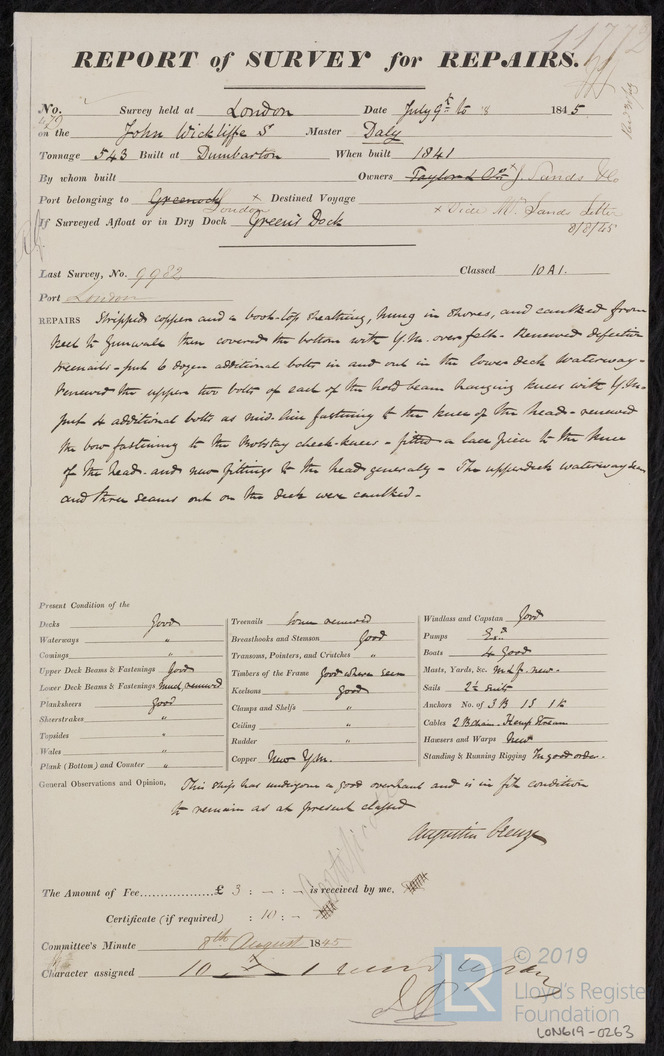 11772
REPORT of SURVEY for REPAIRS.
No. 479 Survey held at London Date July 9th to 8 1845
on the John Wickliffe S Master Daly
Tonnage 543 Built at Dumbarton When built 1841
By whom built Owners Taylor & Co × J. Sands & Co
Port belonging to Greenock London × Destined Voyage × Vide Mr Sands Letter
If Surveyed Afloat or in Dry Dock Green's Dock 8/8/45
Last Survey, No. 9982 Classed 10 A1.
Port London
REPAIRS Stripped copper and a boot-top sheathing, hung in shores, and caulked from
keel to Gunwale then covered the bottom with Y.M. over felt - Renewed defective
treenails - put 6 dozen additional bolts in and out in the lower deck Waterway -
Renewed the upper two bolts of each of the hold beam hanging knees with Y.M. -
put 4 additional bolts as mid-line fastening to the knee of the head - renewed
the bow fastening to the bobstay cheek-knees - fitted a lace piece to the knee
of the head and new fittings to the head generally - The upperdeck waterway seam
and three seams out on the deck were caulked -
Present Condition of the
Decks Good
Waterways "
Comings "
Upper Deck Beams & Fastenings Good
Lower Deck Beams & Fastenings much renewed
Planksheers Good
Sheerstrakes "
Topsides "
Wales "
Plank (Bottom) and Counter "
Treenails Some renewed
Breasthooks and Stemson Good
Transoms, Pointers, and Crutches "
Timbers of the Frame Good where seen
Keelsons Good
Clamps and Shelfs "
Ceiling "
Rudder "
Copper New Y.M.
Windlass and Capstan Good
Pumps
Boats 4 Good
Masts, Yards, &c. new -
Sails 2½ Suits
Anchors No. of 3 B 1 S 1 K
Cables 2 B chain - Hemp Stream
Hawsers and Warps New
Standing & Running Rigging In good order -
General Observations and Opinion, This ship has undergone a good overhaul and is in fit condition
to remain as at present classed
Augustin Creuze
The Amount of Fee.................. £ 3 : - : - is received by me,
Certificate (if required) : 10 : -
Committee's Minute 8th August 1845
Character assigned 10 A 1
© 2019
LR Lloyd's Register
Foundation
LON619-0263